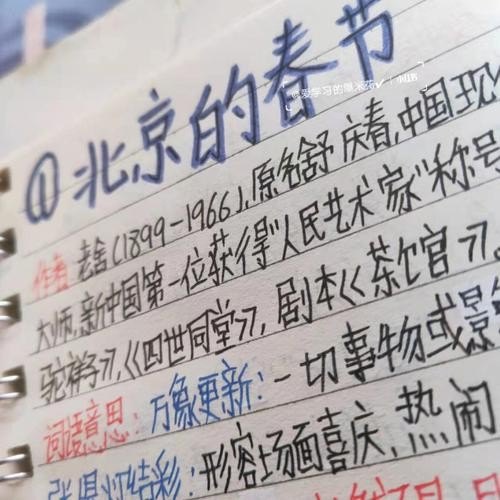 ①北京的春节
作者:老舍(1899-1966),原名舒庆春,中国现
大师,新中国第一位获得"人民艺术家"称号
骆驼祥子》,《四世同堂》,剧本《茶馆》。
词语意思:万象更新:一切事物或景
张灯结彩:形容场面喜庆,热闹